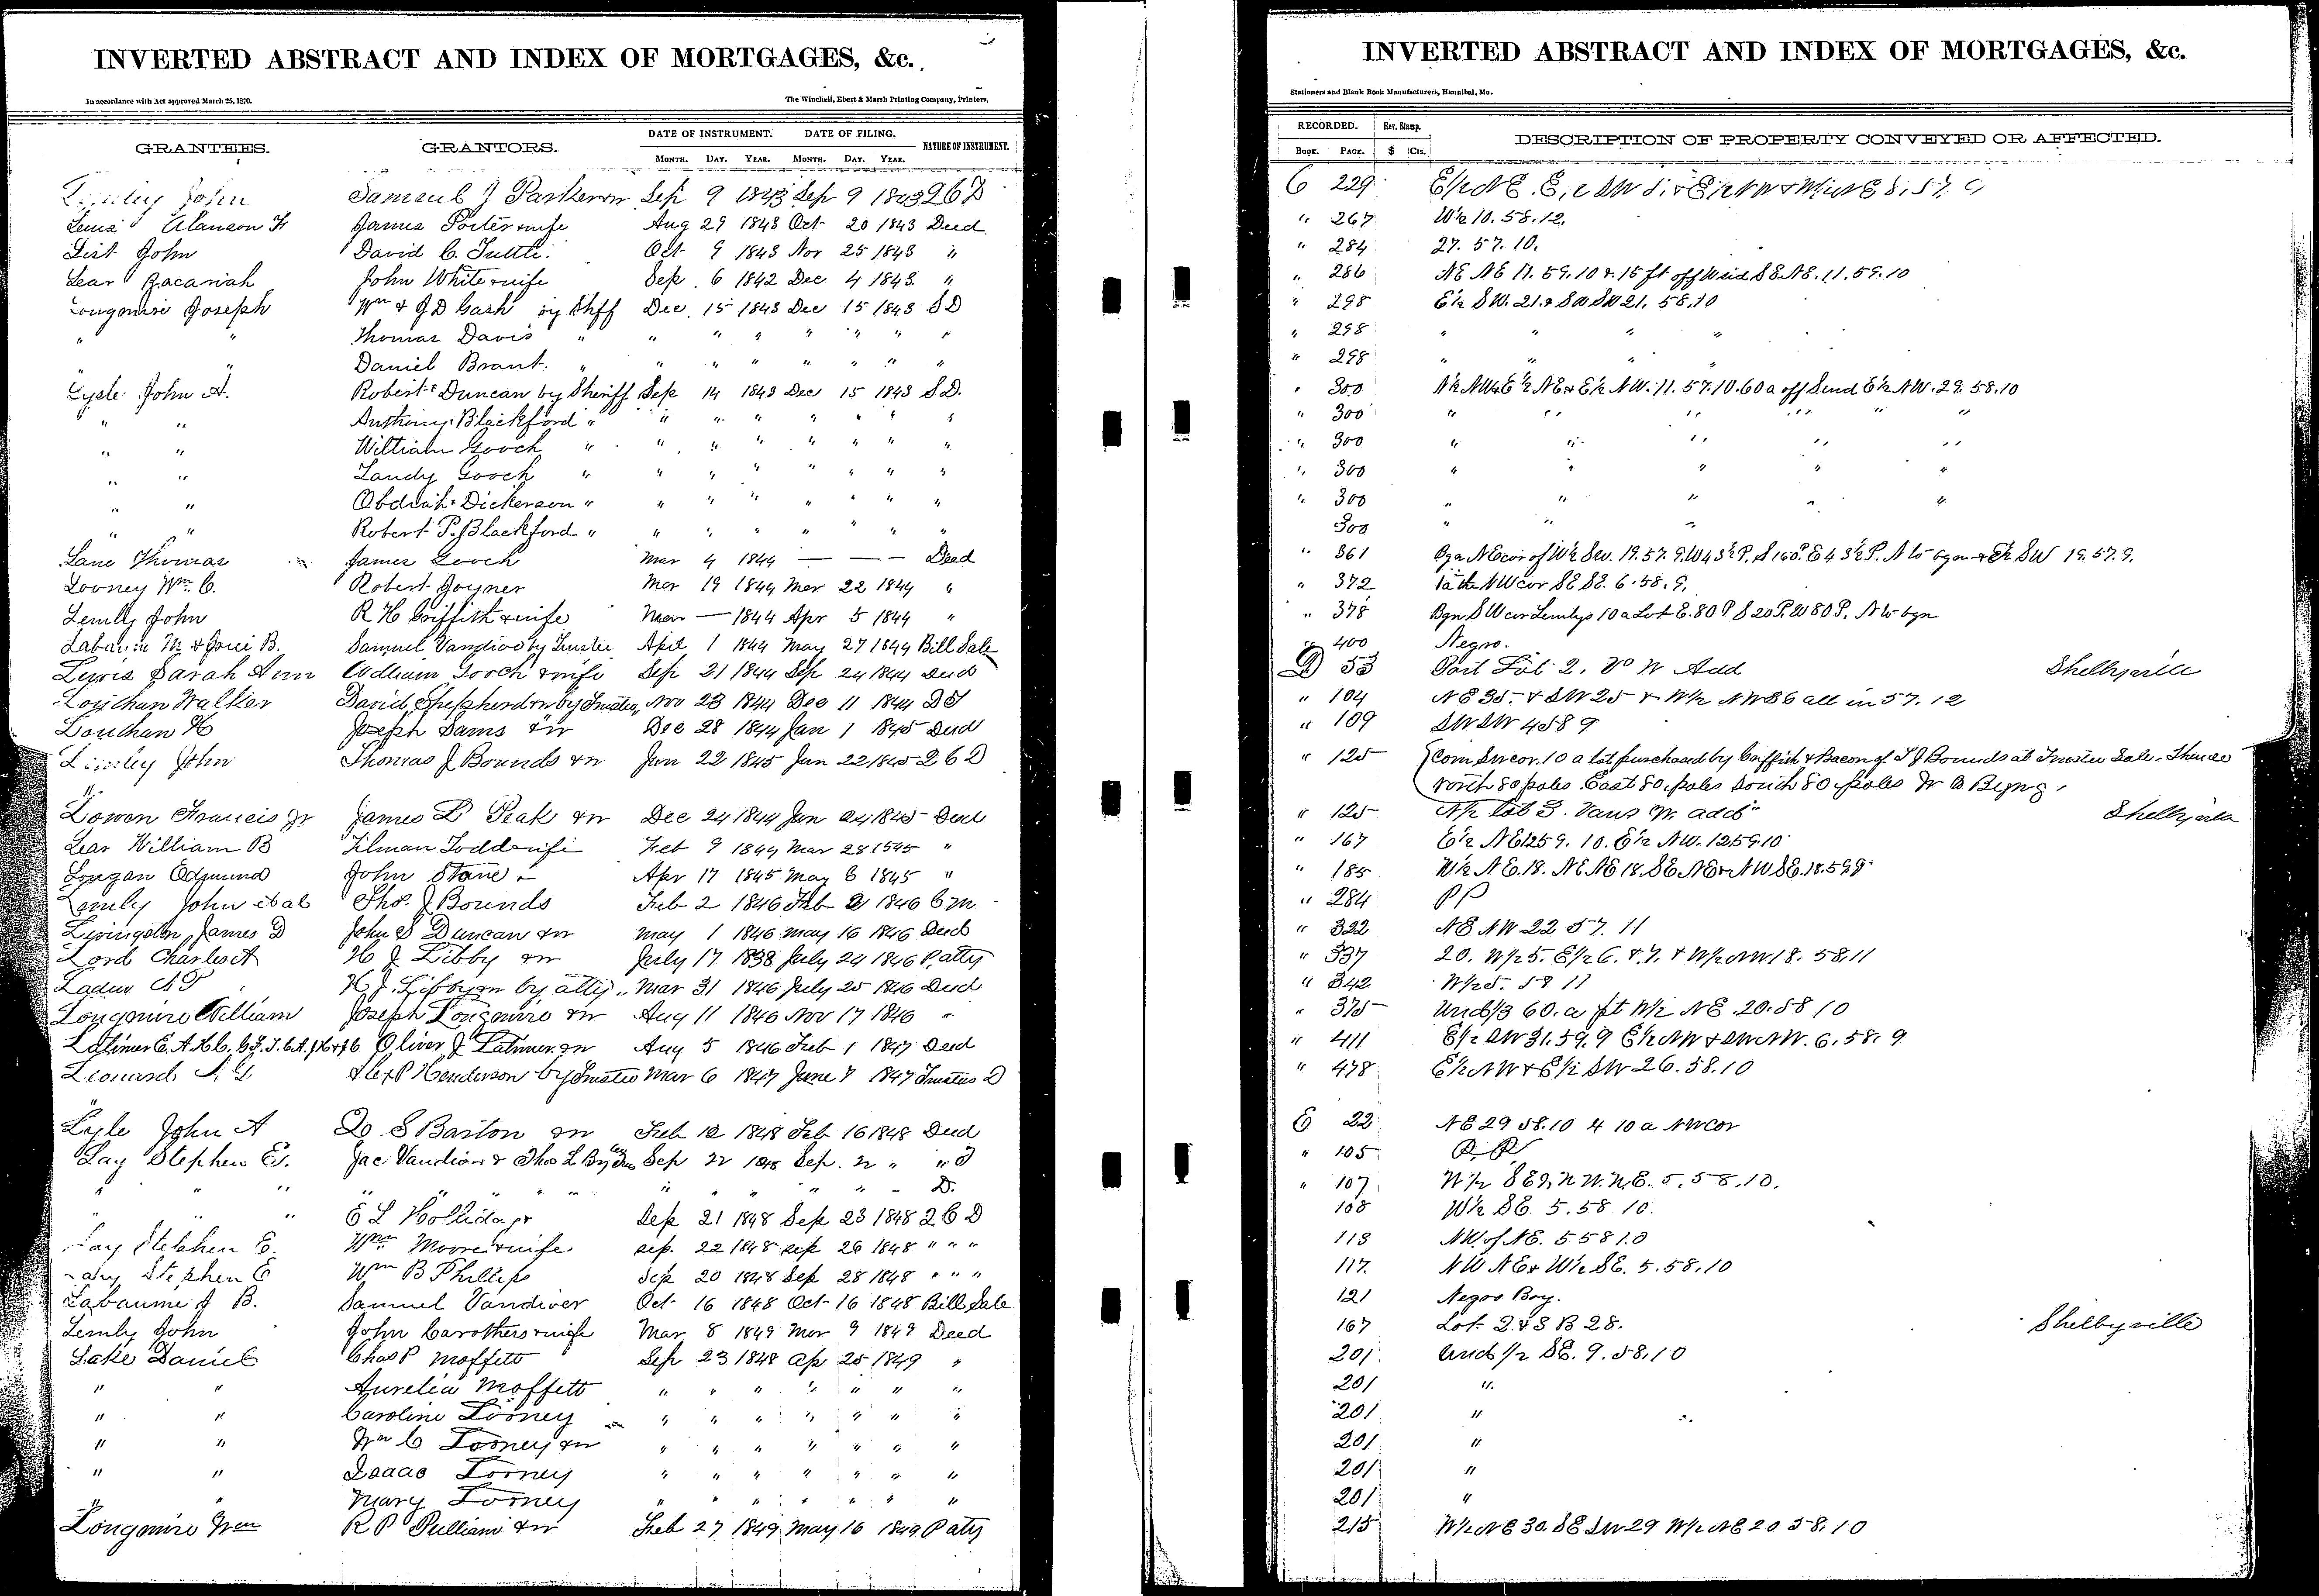 INVERTED ABSTRACT AND INDEX OF MORTGAGES, &c.
In accordance with Act approved March 25, 1870.
The Winchell, Ebert & Marsh Printing Company, Printers,
DATE OF INSTRUMENT. DATE OF FILING.
GRANTEES. GRANTORS. NATURE OF INSTRUMENT.
MONTH. DAY. YEAR. MONTH. DAY. YEAR.
John Samuel J Parkerson Sep 9 1843 Sep 9 1843 2 6 D
Lewis Alanson F James Porter & wife Aug 29 1843 Oct 20 1843 Deed
List John David C. Tuttle. Oct 9 1843 Nov 25 1843 "
Lear Zacariah John White & wife Sep 6 1842 Dec 4 1843 "
Longmire Joseph Wm & J D Gash by Shff Dec. 15 1843 Dec 15 1843 S D
" " Thomas Davis " " " " " " " "
" " Daniel Brant. " " " " " " " "
Lysle John A. Robert Duncan by Sheriff Sep 14 1843 Dec 15 1843 S D.
" " Anthony Blackford " " " " " " " "
" " William Gooch " " " " " " " "
" " Landy Gooch " " " " " " " "
" " Obdiah Dickerson " " " " " " " "
" " Robert P. Blackford " " " " " " " "
Lane Thomas James Gooch Mar 4 1844 — — — Deed
Looney Wm. C. Robert Joyner Mar 19 1844 Mar 22 1844 "
Lemly John R H Griffith & wife Mar — 1844 Apr 5 1844 "
Samuel Vandiver by Trustee April 1 1844 May 27 1844 Bill Sale
Lewis Sarah Ann William Gooch & wife Sep 21 1844 Sep 24 1844 Deed
Louthan Walker David Shepherd by Trustee Nov 23 1844 Dec 11 1844 D T
Louthan H Joseph Sams & w Dec 28 1844 Jan 1 1845 Deed
John Thomas J Bounds & w Jan 22 1845 Jan 22 1845 2 6 D
Lowen Francis Jr James L Peak & w Dec 24 1844 Jan 24 1845 Deed
Lear William B Tilman Todd & wife Feb 9 1844 Mar 28 1845 "
Longan Edmund John Stone Apr 17 1845 May 6 1845 "
Lemly John et al Tho. J Bounds Feb 2 1846 Feb 2 1846 C m
Livingston, James D John S Duncan & w May 1 1846 May 16 1846 Deed
Lord Charles A H J Libby & w July 17 1838 July 24 1846 P. atty
H J. Libby & w by atty. Mar 31 1846 July 25 1846 Deed
Longmire William Joseph Longmire & w Aug 11 1846 Nov 17 1846 "
Oliver J Latimer & w Aug 5 1846 Feb 1 1847 Deed
Leonard Alex P Henderson by Trustee Mar 6 1847 June 7 1847 Trustees D
Lyle John A S Barton & w Feb 12 1848 Feb 16 1848 Deed
Lay Stephen E. Jac Vandiver & Thos L Sep 22 1848 Sep. 22 "
" " " " " " " " " " " D.
" " " E L Holliday Sep 21 1848 Sep 23 1848 2 6 D
Lay Stephen E. Wm Moore & wife Sep. 22 1848 Sep 26 1848 " " "
Lay Stephen E Wm B Phillips Sep 20 1848 Sep 28 1848 " " "
Labaume J B. Samuel Vandiver Oct 16 1848 Oct 16 1848 Bill Sale
Lemly John John Carothers & wife Mar 8 1849 Mar 9 1849 Deed
Lake Daniel Chas P Moffett Sep 23 1848 Ap 25 1849 "
" " Aurelia Moffett " " " " " " "
" " Caroline Looney " " " " " " "
" " Wm C Looney & w " " " " " " "
" " Isaac Looney " " " " " " "
" " Mary Looney " " " " " " "
Longmire Wm R P Pulliam & w Feb 27 1849 May 16 1849 P aty
INVERTED ABSTRACT AND INDEX OF MORTGAGES, &c.
Stationers and Blank Book Manufacturers, Hannibal, Mo.
RECORDED. Rev. Stamp. DESCRIPTION OF PROPERTY CONVEYED OR AFFECTED.
BOOK. PAGE. $ Cts.
C 229
" 267 W½ 10. 58. 12.
" 284 27. 57. 10.
" 286 NE NE 11. 59. 10 & 15 ft off W sid SE NE. 11. 59. 10
" 298 E½ SW. 21. & SW SW 21. 58. 10
" 298 " " " "
" 298 " " " "
" 300 60 a off S end E½ NW. 29. 58. 10
" 300 " " " " " "
" 300 " " " " "
" 300 " " " " "
" 300 " " " " "
300 " " "
" 361 Bgn NE cor of W½ SW. 19. 57. 9. SW 19. 57. 9.
" 372 NW cor SE SE. 6. 58. 9.
" 378 Bgn SW cor Lemlys 10 a Lot E. 80 P S 20 P. W 80 P. N to bgn
" 400 Negro.
D 53 Part Lot 2. V W Add Shelbyville
" 104 NE 35. & SW 25 & W½ NW 36 all in 57. 12
" 109 SW SW 4 58 9
" 125 Com SW cor. 10 a lot purchased by Griffith & Bacon of T J Bounds at Trustee Sale. Thence
north 80 poles East 80 poles South 80 poles W to Bgng.
" 125 lot 3. Vans W. add Shelbyville
" 167 E½ NE 12 59. 10. E½ NW. 12 59 10
" 185 W½ NE. 18. NE NE 18. SE NE & NW SE. 18. 59 9
" 284 PP
" 322 NE NW 22 57. 11
" 337 20. W½ 5. E½ 6. & 7. & W½ NW 18. 58. 11
" 342 W½ 5. 58 11
" 375 Und ⅓ 60. a pt W½ NE. 20. 58 10
" 411 E½ SW 31. 59. 9 E½ NW & SW NW. 6. 58. 9
" 478 E½ NW & E½ SW 26. 58. 10
E 22 NE 29 58. 10 & 10 a NW cor
" 105
" 107 N.W. N.E. 5. 58. 10.
108 W½ SE. 5. 58. 10.
113 NW of NE. 5 58 10
117. NW NE & W½ SE. 5. 58. 10
121 Negro Boy.
167 Lot 2 & 3 B 28. Shelbyville
201 Und ½ SE. 9. 58. 10
201 "
201 "
201 "
201 "
201 "
215 W½ NE 30. SE SW 29 W½ NE 20 58. 10